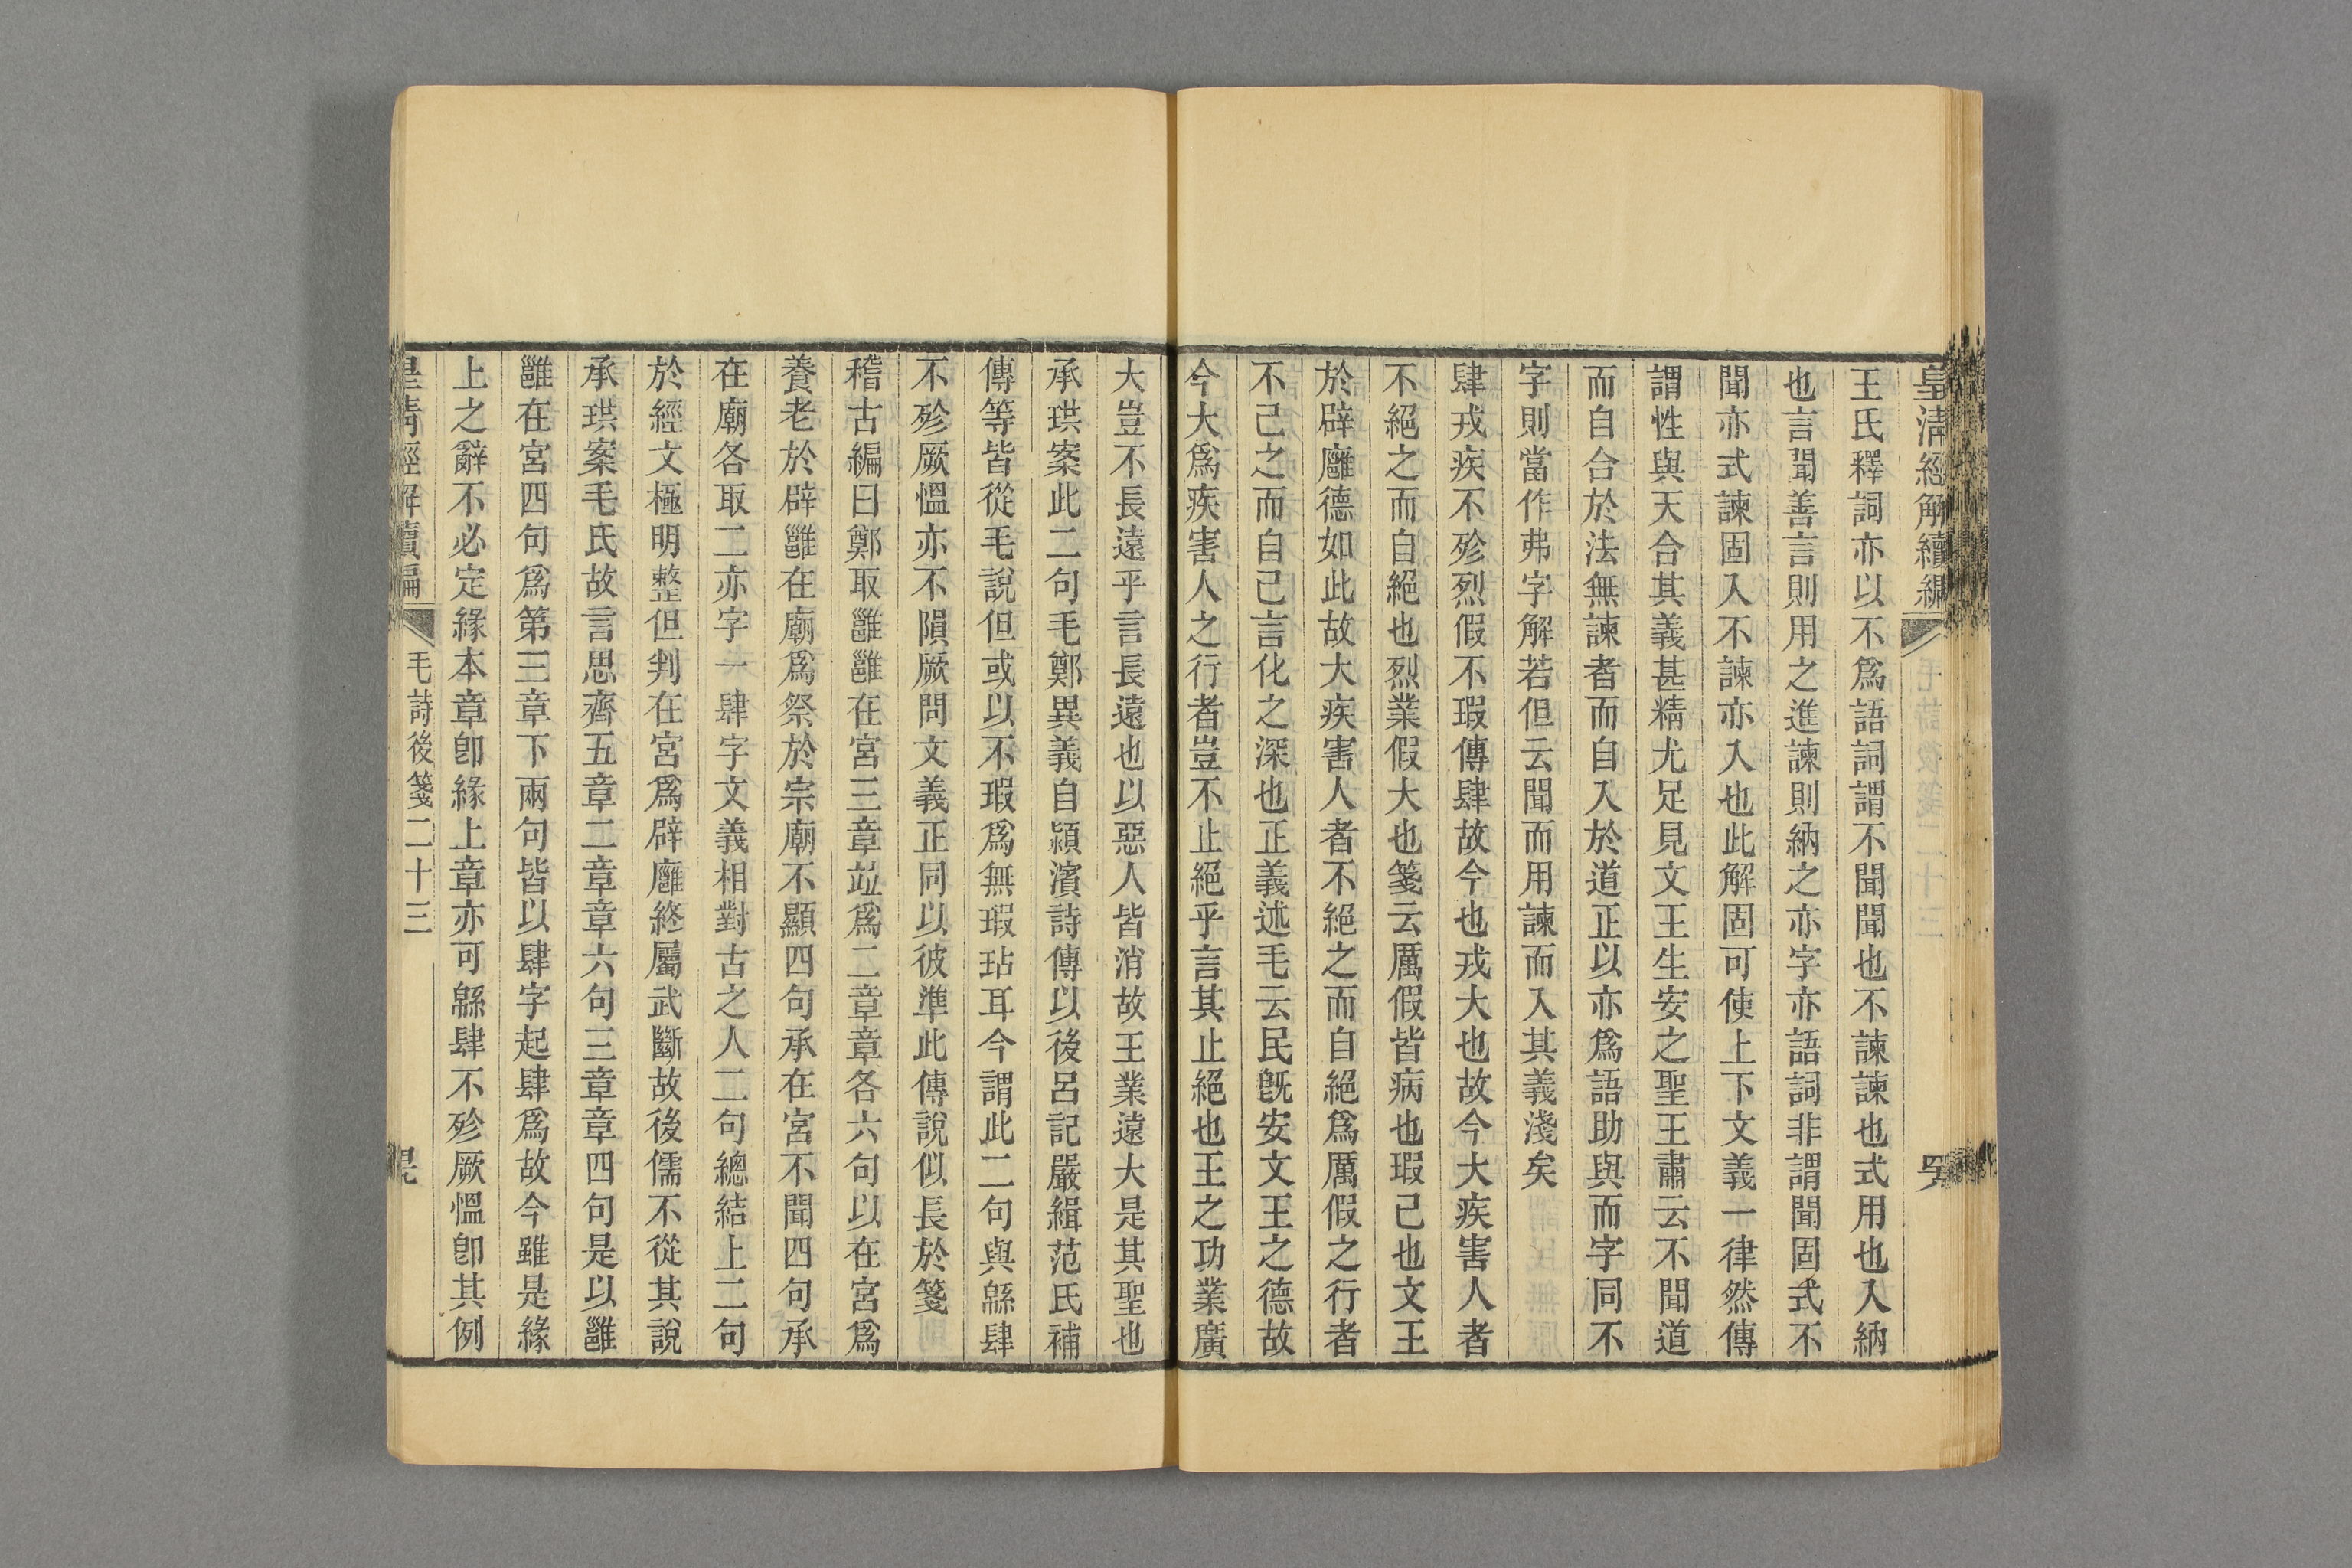 皇淸經解續編
王氏釋詞亦以不爲語詞謂不聞聞也不諫諫也式用也入納
也言聞善言則用之進諫則納之亦字亦語詞非謂聞固式不
聞亦式諫固入不諫亦入也此解固可使上下文義一律然傳
謂性與天合其義甚精尤足見文王生安之聖王肅云不聞道
而自合於法無諫者而自入於道正以亦爲語助與而字同不
字則當作弗字解若但云聞而用諫而入其義淺矣
肆戎疾不殄烈假不瑕傳肆故今也戎大也故今大疾害人者
不絕之而自絕也烈業假大也箋云厲假皆病也瑕己也文王
於辟廱德如此故大疾害人者不絕之而自絕爲厲假之行者
不己之而自己言化之深也正義述毛云民旣安文王之德故
今大爲疾害人之行者豈不止絕乎言其止絕也王之功業廣
大豈不長遠乎言長遠也以惡人皆消故王業遠大是其聖也
承珙案此二句毛鄭異義自潁濱詩傳以後呂記嚴緝范氏補
傳等皆從毛說但或以不瑕爲無瑕玷耳今謂此二句與緜肆
不殄厥慍亦不隕厥問文義正同以彼準此傳說似長於箋
稽古編曰鄭取雝雝在宮三章竝爲二章章各六句以在宮爲
養老於辟雝在廟爲祭於宗廟不顯四句承在宮不聞四句承
在廟各取二亦字一肆字文義相對古之人二句總結上二句
於經文極明整但判在宮爲辟廱終屬武斷故後儒不從其說
承珙案毛氏故言思齊五章二章章六句三章章四句是以雝
雝在宮四句爲第三章下兩句皆以肆字起肆爲故今雖是緣
上之辭不必定緣本章卽緣上章亦可緜肆不殄厥慍卽其例
皇淸經解續編 毛詩後箋二十三